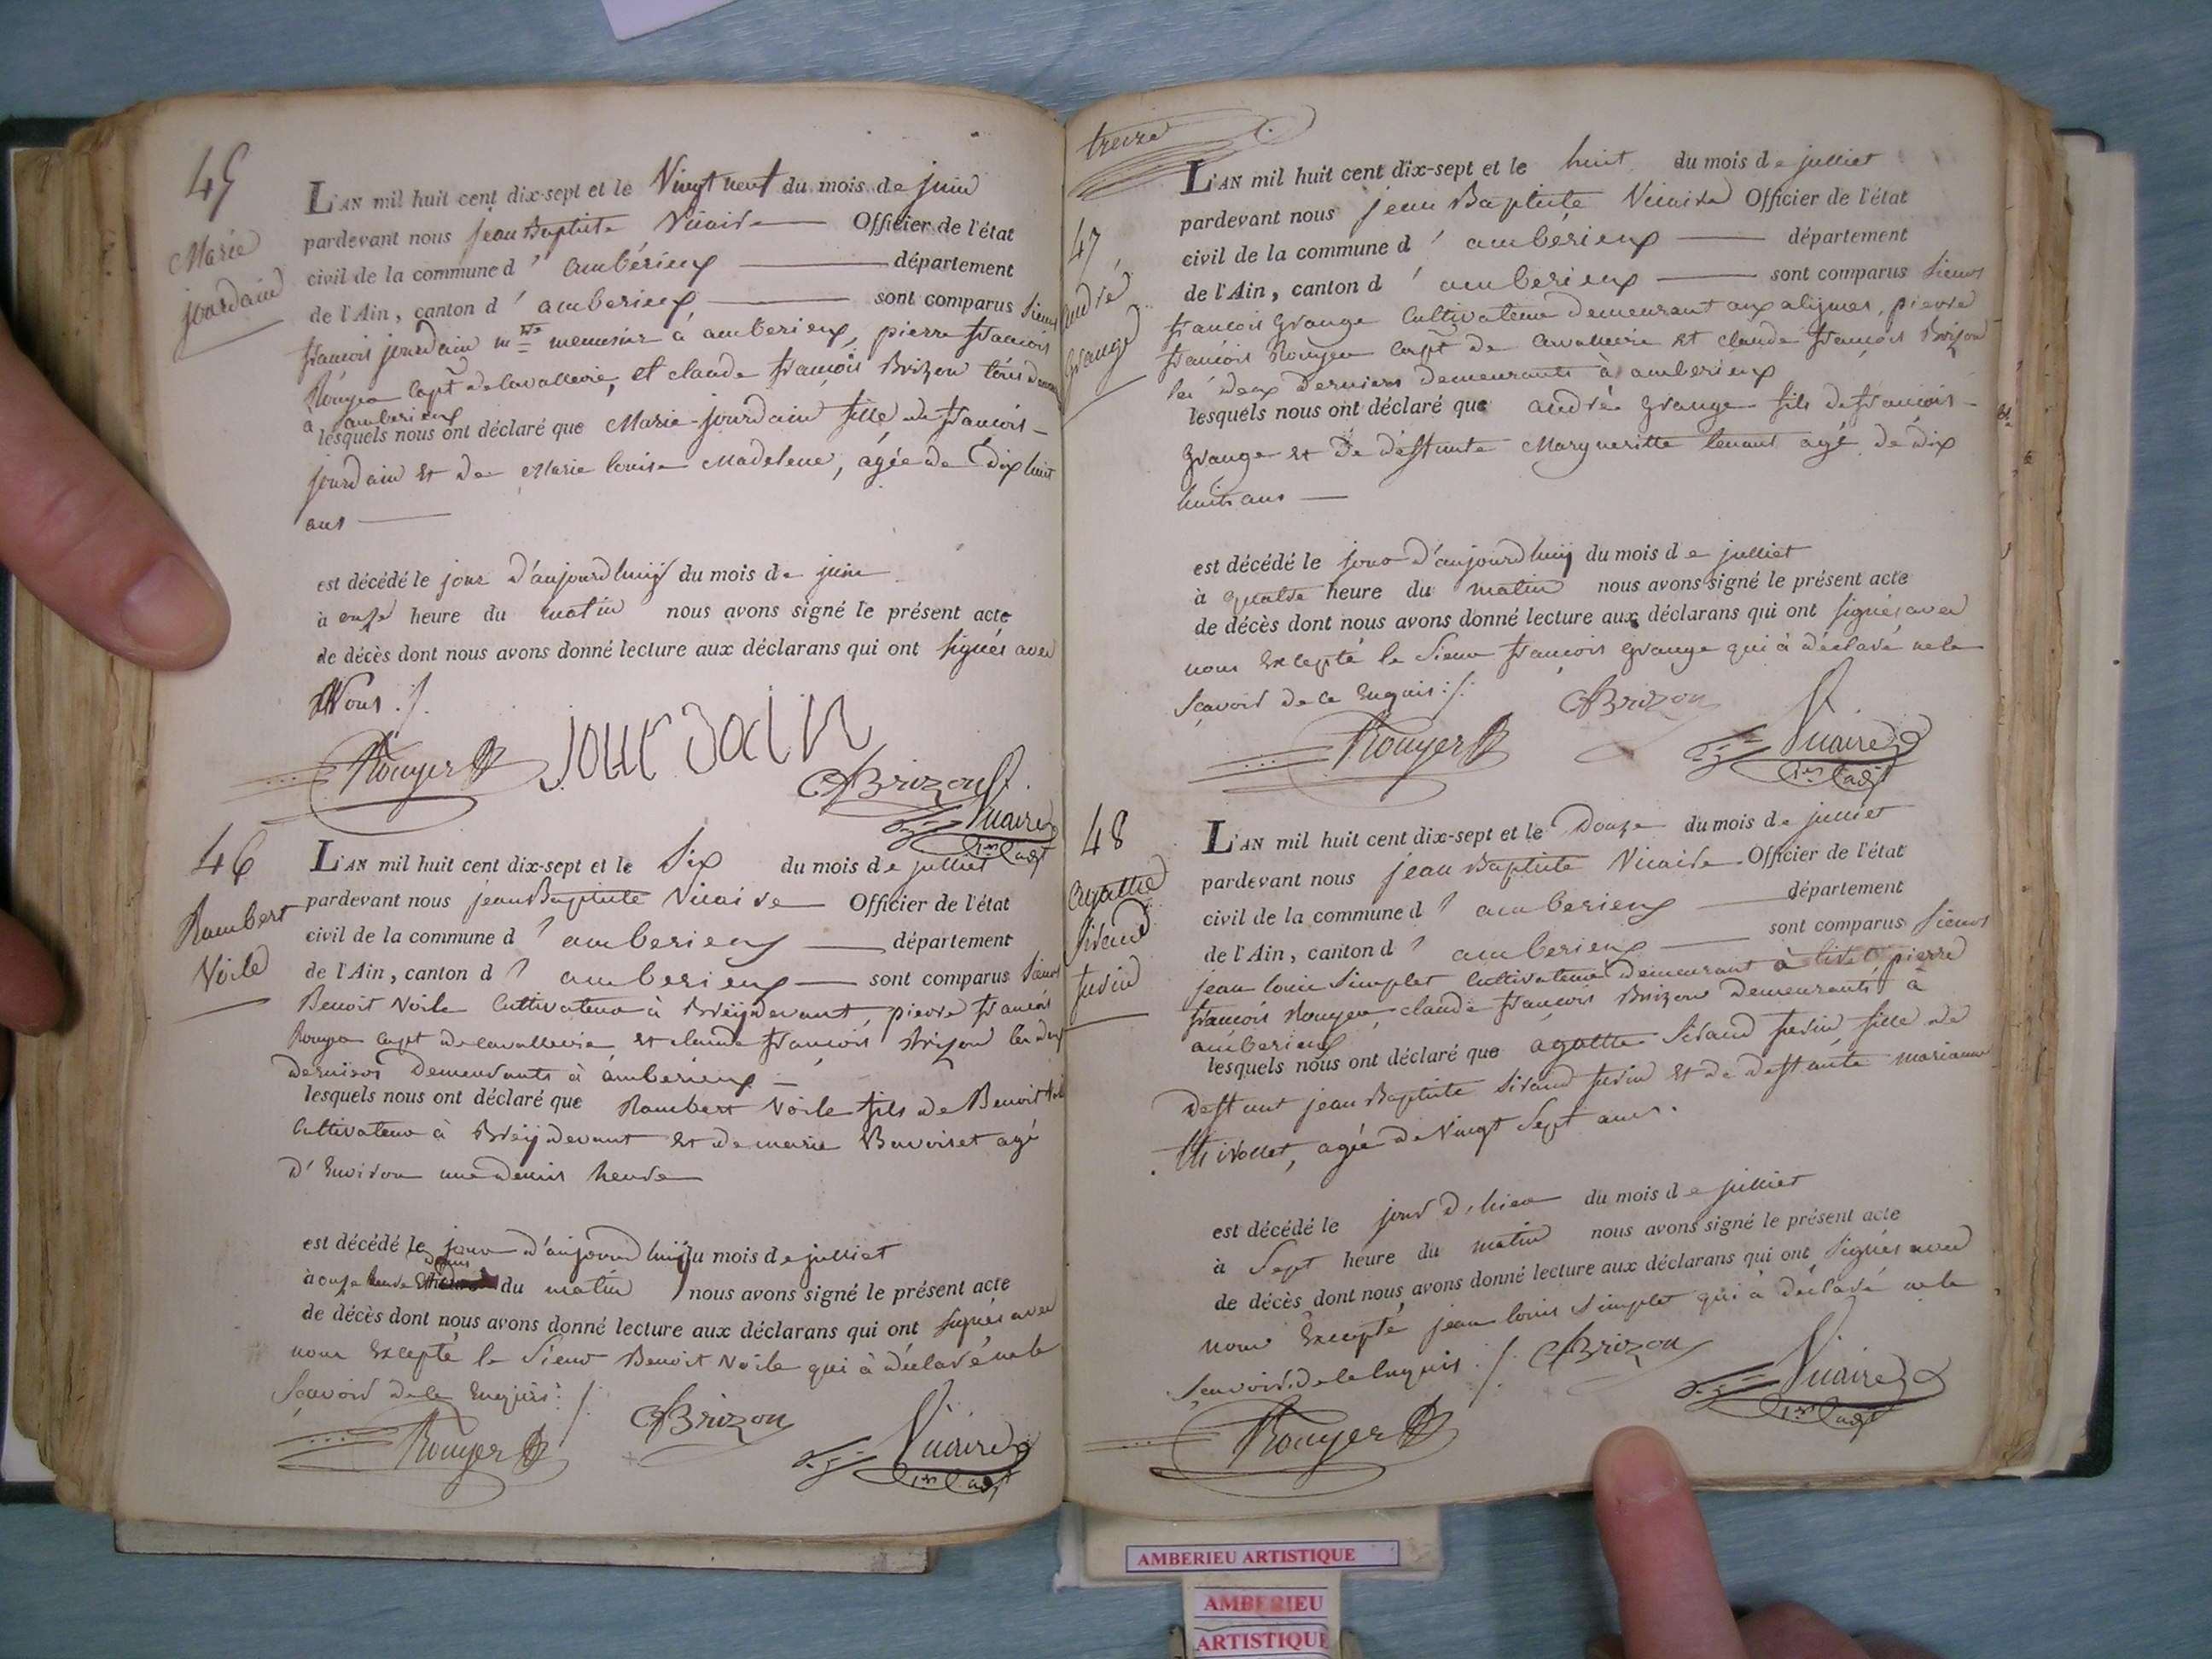 45
Marie
jourdain
L'AN mil huit cent dix-sept et le Vingt neuf du mois de juin
pardevant nous jean Baptiste Vicaire Officier de l'état
civil de la commune d' amberieux département
de l'Ain, canton d' amberieux sont comparus Sieurs
francois jourdain m.tre menusier à amberieux, pierre francois
Rouyer capt de cavallerie, et claude francois Brizon tous
à amberieux
lesquels nous ont déclaré que Marie jourdain fille de francois
jourdain et de Marie louise Madelene, agée de dix huit
ans
est décédé le jour d'aujourdhuij du mois de juin
à onze heure du matin nous avons signé le présent acte
de décès dont nous avons donné lecture aux déclarans qui ont signés avec
Nous :/.
Rouyer jourdain
CfBrizon
Vicaire
1er adjt
46
Rambert
Voile
L'AN mil huit cent dix-sept et le Six du mois de julliet
pardevant nous jean Baptiste Vicaire Officier de l'état
civil de la commune d' amberieux département
de l'Ain, canton d' amberieux sont comparus Sieurs
Benoit Voile Cultivateur à Breydevant, pierre francois
Rouyer capt de cavallerie et claude francois Brizon les deux
derniers Demeurants à amberieux
lesquels nous ont déclaré que Rambert Voile fils de Benoit
Cultivateur à Breydevant et de marie agé
d'Environ une demis heure
est décédé le jour d'aujourdhuij du mois de julliet
à onze heure Et demis du matin nous avons signé le présent acte
de décès dont nous avons donné lecture aux déclarans qui ont signés avec
nous Excepté le Sieur Benoit Voile qui à déclaré ne le
Sçavoir de le Enquis :/.
Rouyer CfBrizon Vicaire
1er adjt
treize
47
andré
Grange
L'AN mil huit cent dix-sept et le huit du mois de julliet
pardevant nous jean Baptiste Vicaire Officier de l'état
civil de la commune d' amberieux département
de l'Ain, canton d' amberieux sont comparus Sieurs
francois Grange Cultivateur demeurant aux alymes, pierre
francois Rouyer capt de cavallerie et claude francois Brizon
les deux derniers demeurants à amberieux
lesquels nous ont déclaré que andré Grange fils de francois
Grange et de deffunte Margueritte tenant agé de dix
huit ans
est décédé le jour d'aujourdhuij du mois de julliet
à quatre heure du matin nous avons signé le présent acte
de décès dont nous avons donné lecture aux déclarans qui ont signés avec
nous Excepté le Sieur francois Grange qui à déclaré ne le
Sçavoir de le Enquis :/.
Rouyer CfBrizon Vicaire
1er adjt
48
agatthe
Siraud
furin
L'AN mil huit cent dix-sept et le Douze du mois de julliet
pardevant nous jean Baptiste Vicaire Officier de l'état
civil de la commune d' amberieux département
de l'Ain, canton d' amberieux sont comparus Sieurs
jean louis Simplet Cultivateur demeurant à pierre
francois Rouyer, claude francois Brizon demeurants à
amberieux
lesquels nous ont déclaré que agatthe Siraud furin fille de
deffunt jean Baptiste Siraud furin et de deffunte marianne
thivollet, agée de Vingt Sept ans.
est décédé le jour d'hier du mois de julliet
à Sept heure du matin nous avons signé le présent acte
de décès dont nous avons donné lecture aux déclarans qui ont signés avec
nous Excepté jean louis Simplet qui à déclaré ne le
Sçavoir de le Enquis :/.
Rouyer CfBrizon Vicaire
1er adjt
AMBERIEU ARTISTIQUE
AMBERIEU
ARTISTIQUE